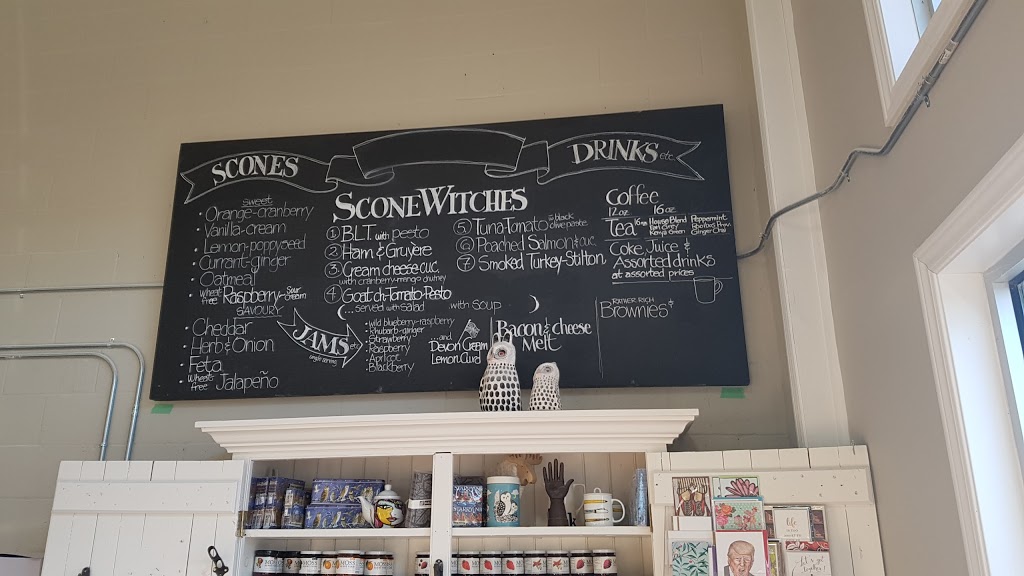 SCONES
Sweet
• Orange-cranberry
• Vanilla-cream
• Lemon-poppyseed
• Currant-ginger
• Oatmeal
• Wheat free Raspberry-Sour cream
SAVOURY
• Cheddar
• Herb & Onion
• Feta
• Wheat free Jalapeño
SCONEWITCHES
1 BLT with pesto
2 Ham & Gruyère
3 Cream cheese-cuc.
with cranberry-mango chutney
4 Goat ch-Tomato-Pesto
...served with salad
5 Tuna-Tomato with black olive paste
6 Poached Salmon & cuc.
7 Smoked Turkey-Stilton
with SOUP
JAMS etc
single serving
• wild blueberry-raspberry
• Rhubarb-ginger
• Strawberry
• Raspberry
• Apricot
• Blackberry
and
Devon Cream
Lemon Curd
Bacon & cheese
Melt
DRINKS etc.
Coffee
12 oz. 16 oz.
Tea 16 oz House Blend Peppermint
Earl Grey
Kenya Green Ginger Chai
Coke, Juice &
Assorted drinks
at assorted prices
RATHER RICH
Brownies